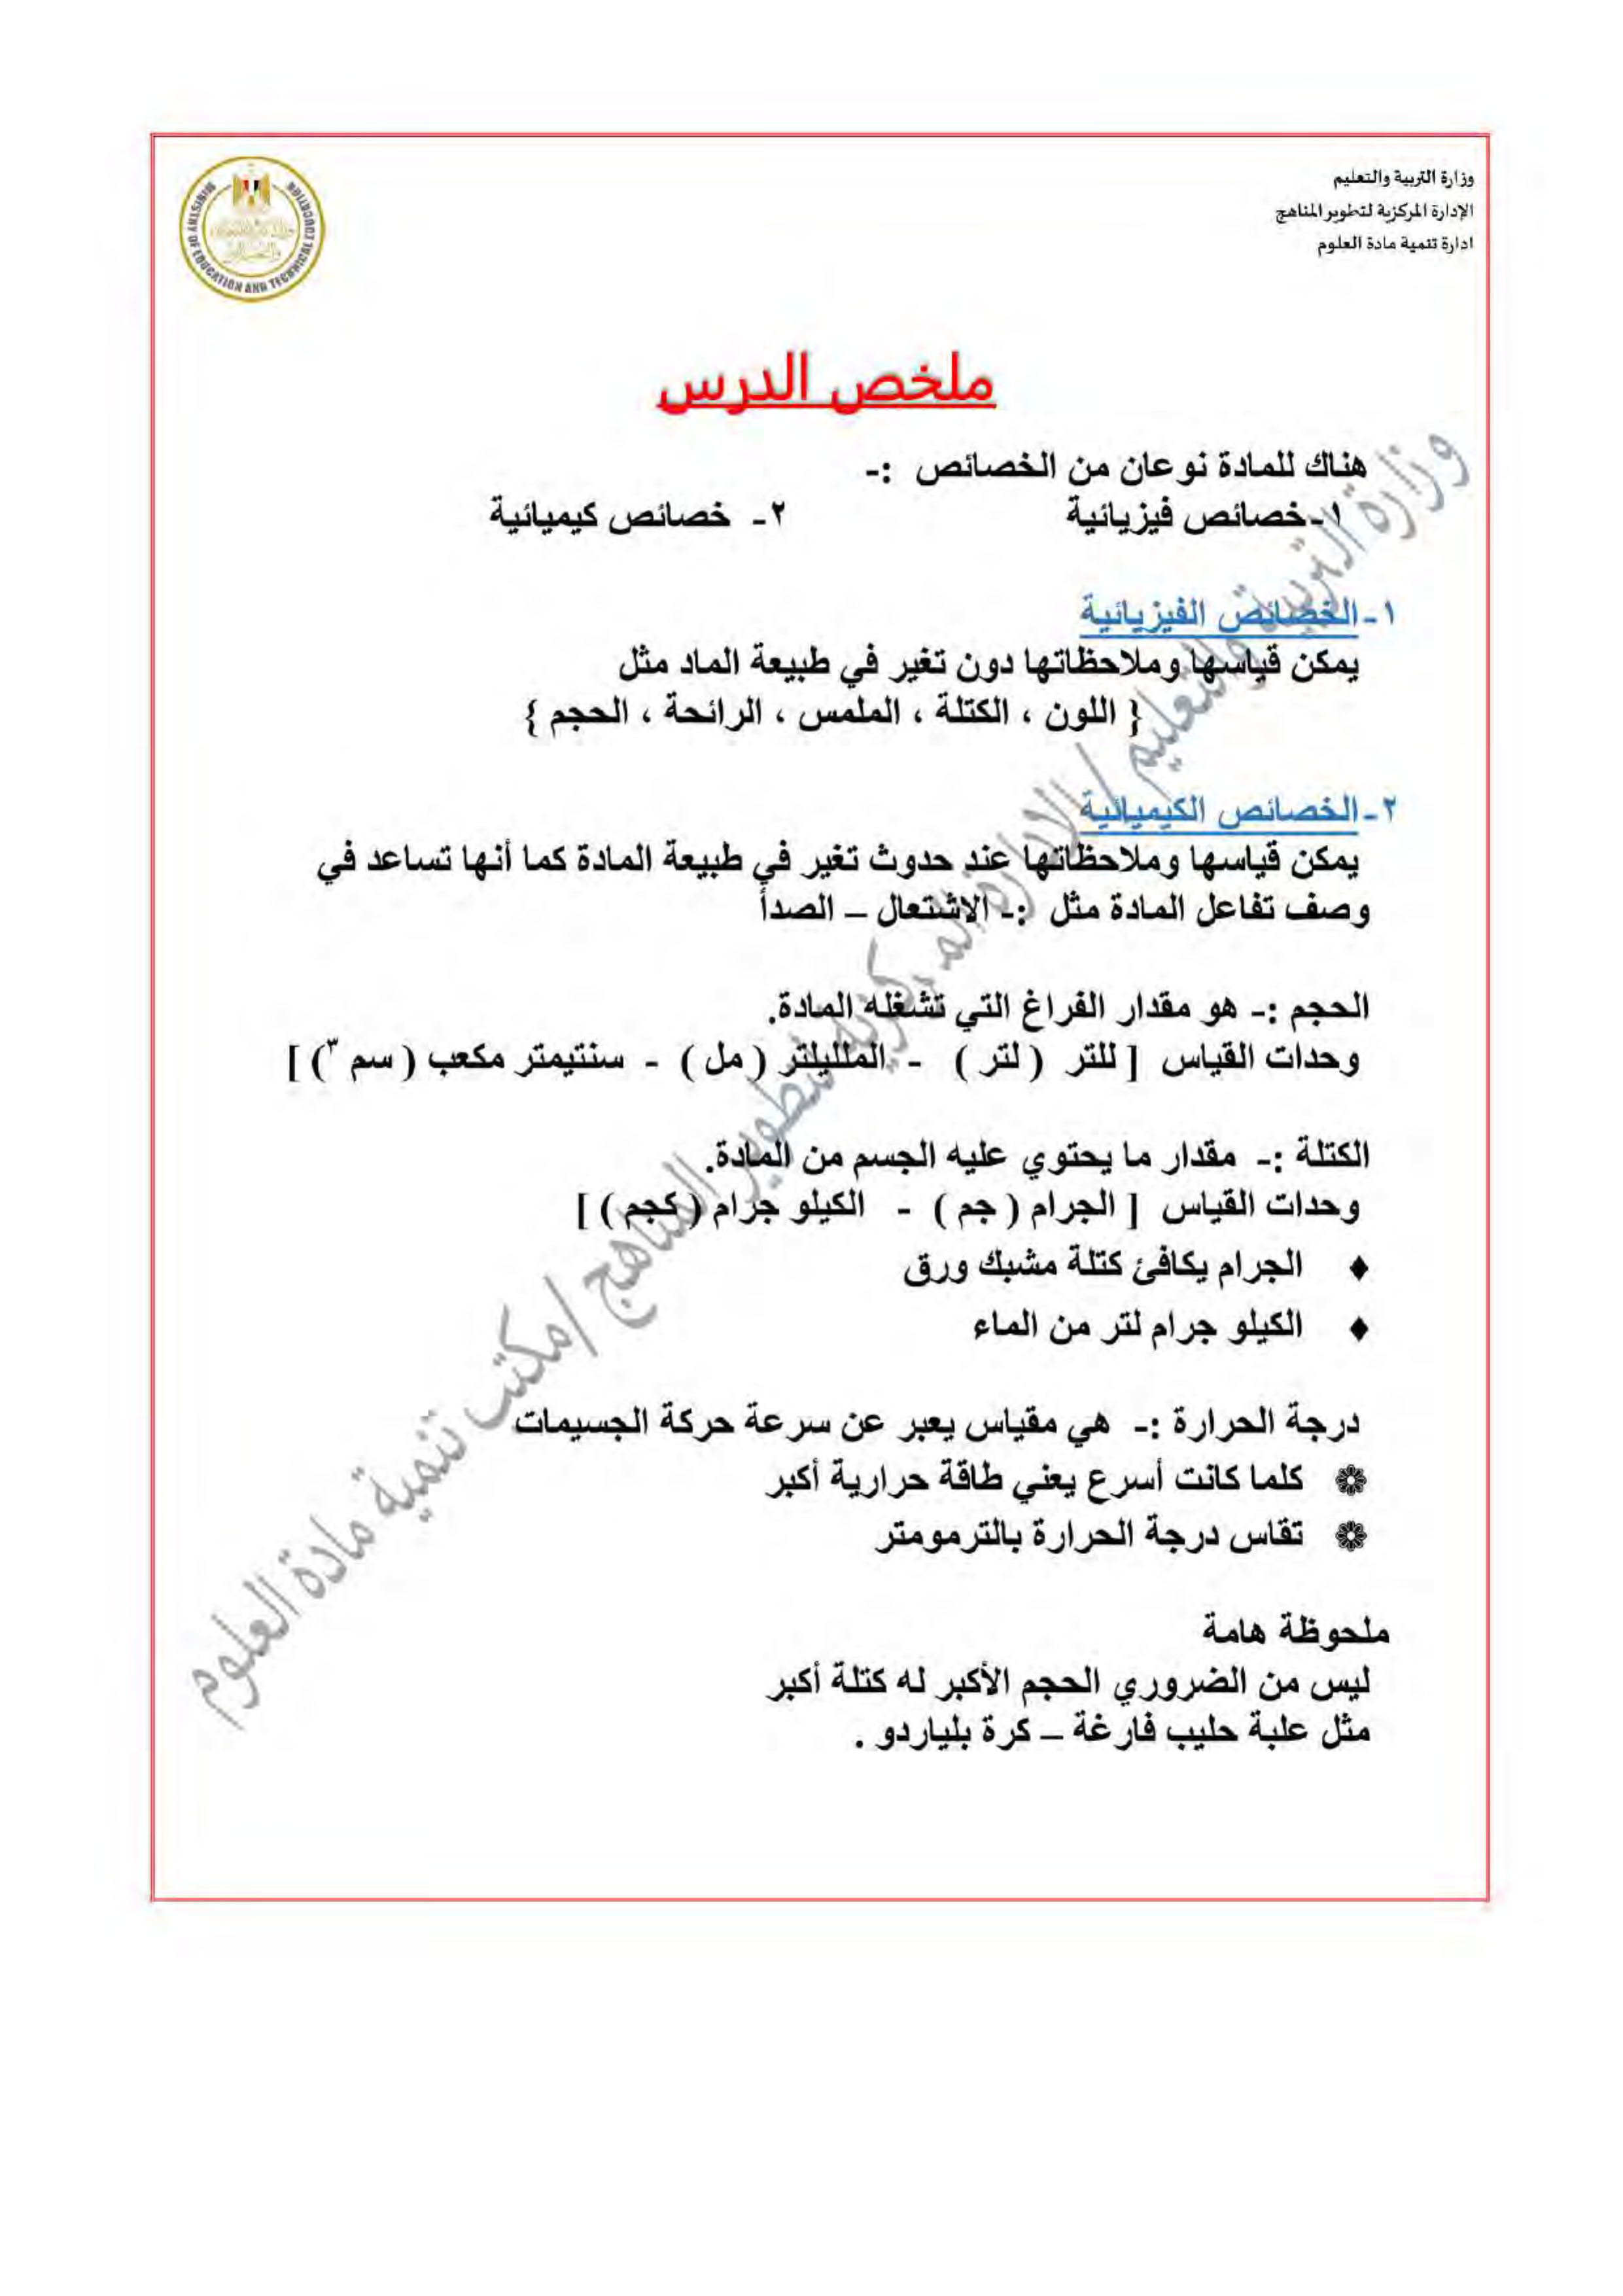 وزارة التربية والتعليم
الإدارة المركزية لتطوير المناهج
ادارة تنمية مادة العلوم
MINISTRY OF EDUCATION AND TECHNICAL EDUCATION
ملخص الدرس
هناك للمادة نوعان من الخصائص :-
١-خصائص فيزيائية ٢- خصائص كيميائية
١-الخصائص الفيزيائية
يمكن قياسها وملاحظاتها دون تغير في طبيعة الماد مثل
{ اللون ، الكتلة ، الملمس ، الرائحة ، الحجم }
٢-الخصائص الكيميائية
يمكن قياسها وملاحظاتها عند حدوث تغير في طبيعة المادة كما أنها تساعد في
وصف تفاعل المادة مثل :- الاشتعال – الصدأ
الحجم :- هو مقدار الفراغ التي تشغله المادة.
وحدات القياس [ للتر ( لتر ) - الملليلتر ( مل ) - سنتيمتر مكعب ( سم ٣) ]
الكتلة :- مقدار ما يحتوي عليه الجسم من المادة.
وحدات القياس [ الجرام ( جم ) - الكيلو جرام ( كجم ) ]
♦ الجرام يكافئ كتلة مشبك ورق
♦ الكيلو جرام لتر من الماء
درجة الحرارة :- هي مقياس يعبر عن سرعة حركة الجسيمات
❁ كلما كانت أسرع يعني طاقة حرارية أكبر
❁ تقاس درجة الحرارة بالترمومتر
ملحوظة هامة
ليس من الضروري الحجم الأكبر له كتلة أكبر
مثل علبة حليب فارغة – كرة بلياردو .
وزارة التربية والتعليم /الإدارة المركزية لتطوير المناهج /مكتب تنمية مادة العلوم